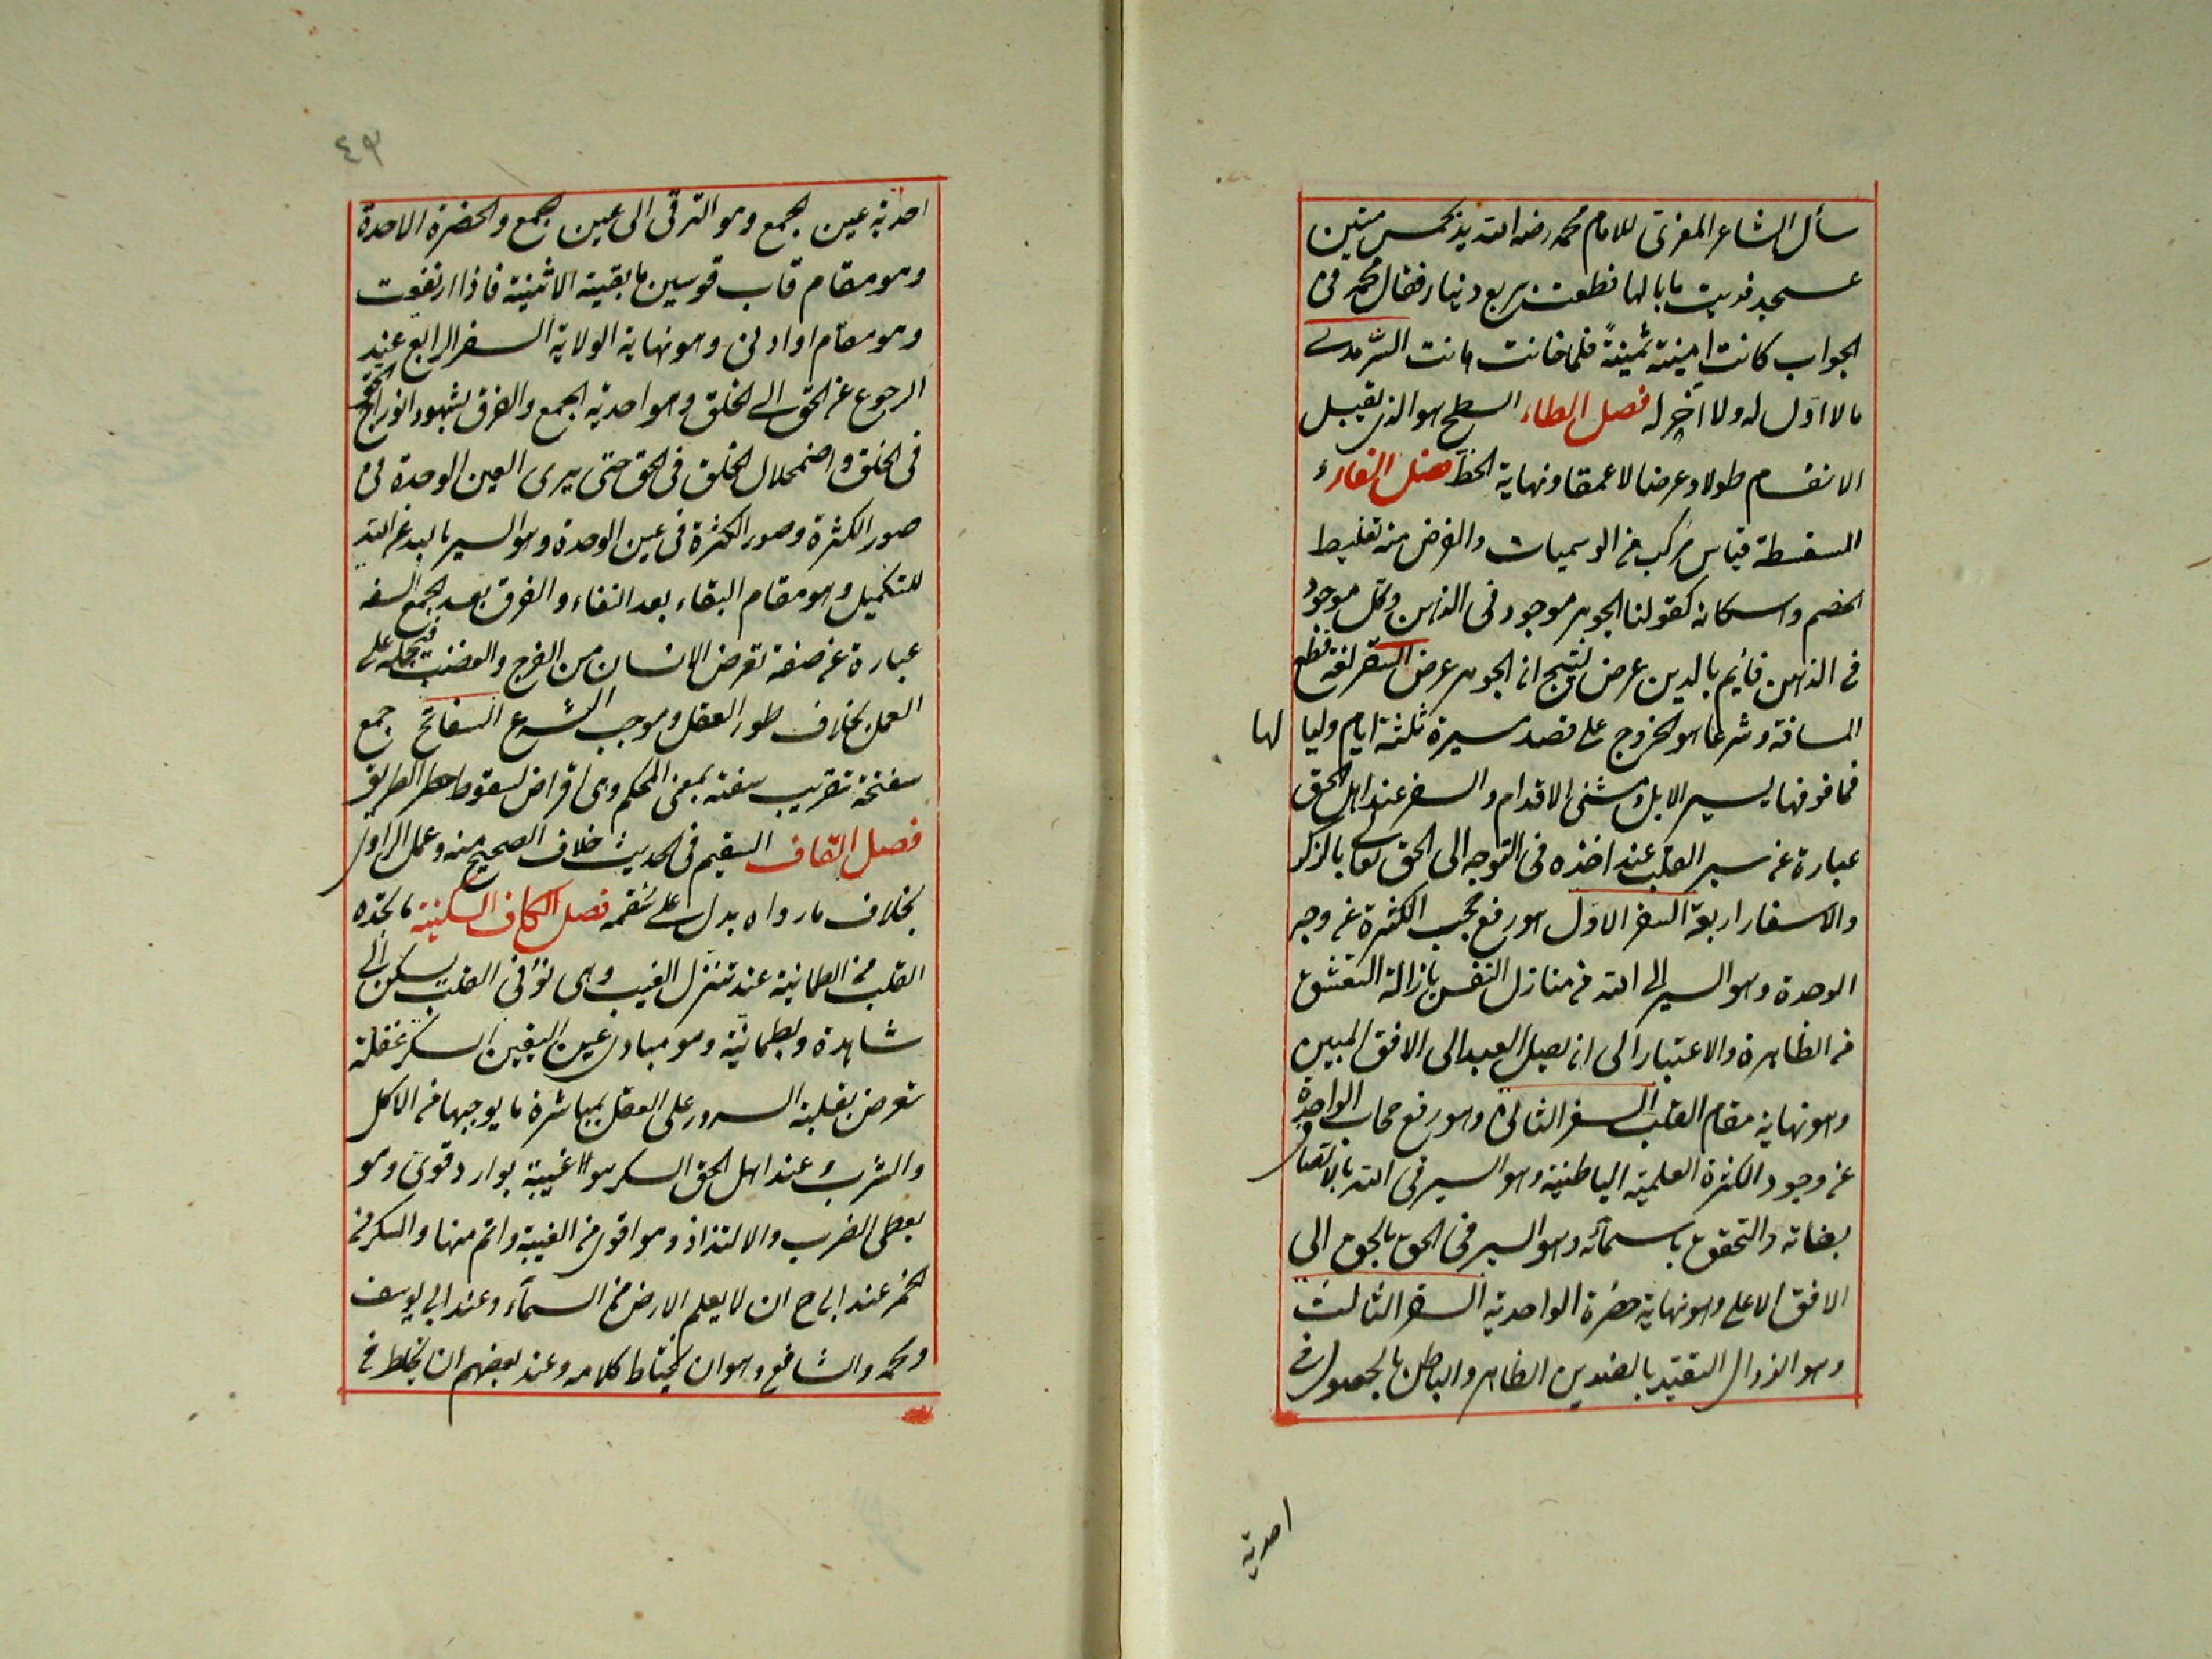 سأل الشاعر المعرى للامام محمد رضه الله يد بخمس مئين
عسجد فديت ما بالها قطعت بربع دينار فقال محمد فى
الجواب كانت امينة ثمينةً فلما خانت هانت السّرمدى
ما لا اوّل له ولا آخر له فصل الطاء السطح هو الذى يقبل
الانقسام طولا وعرضا لا عمقا ونهاية الخط فصل الفاء
السفسطة قياس مركب من الوهميات والغرض منه تغليط
الخصم واسكاته كقولنا الجوهر موجود فى الذهن وكل موجود
فى الذهن قائم بالذهن عرض لينتج ان الجوهر عرض السفر لغة قطع
المسافة وشرعا هو الخروج على قصد مسيرة ثلثة ايام وليا لها
فما فوقها بسير الابل ومشى الاقدام والسفر عند اهل الحق
عبارة عن سير القلب عند اخذه فى التوجه الى الحق تعالى بالذكر
والاسفار اربعة السفر الاوّل هو رفع حجب الكثرة عن وجه
الوحدة وهو السير الى الله من منازل النفس بازالة التعشق
من الظاهرة والاعتبار الى ان يصل العبد الى الافق المبين
وهو نهاية مقام القلب السفر الثانى وهو رفع حجاب الواحدة
عن وجود الكثرة العلمية الباطنية وهو السير فى الله بالاتصاف
بصفاته والتحقق باسمائه وهو السير فى الحق بالحق الى
الافق الاعلى وهو نهاية حضرة الواحدية السفر الثالث
وهو الزوال التقيد بالضدين الظاهر والباطن بالحصول فى
احدية
٤٩
احدية عين الجمع وهو الترقى الى عين الجمع والحضرة الاحدة
وهو مقام قاب قوسين ما بقية الاثنينة فاذا ارتفعت
وهو مقام او ادنى وهو نهاية الولاية السفر الرابع عند
الرجوع عن الحق الى الخلق وهو احدية الجمع والفرق بشهود اندراج الحق
فى الخلق واضمحلال الخلق فى الحق حتى يرى العين الوحدة فى
صور الكثرة وصور الكثرة فى عين الوحدة وهو السير بالله عن الله
للتكميل وهو مقام البقاء بعد الفناء والفرق بعد الجمع السفه
عبارة عن صفة تعرض الانسان من الفرج والغضب فيحمله على
العمل بخلاف طور العقل وموجب الشرع السفاتج جمع
سفتجة تعريب سفته بمعنى المحكم وهى اقراض لسقوط خطر الطريق
فصل القاف السقيم فى الحديث خلاف الصحيح منه وعمل الراوى
بخلاف ما رواه يدل على سقمه فصل الكاف السكينة ما يجده
القلب من الطمانية عند تنزل الغيب وهى نور فى القلب يسكن الى
شاهده ويطمانية وهو مبادى عين اليقين السكر غفلة
تعرض بغلبة السرور على العقل بمباشرة ما يوجبها من الاكل
والشرب وعند اهل الحق السكر هو غيبة بوارد قوى وهو
يعطى الضرب والالتذاذ وهو اقوى من الغيبة واتم منها والسكر من
الخمر عند ابى ح ان لا يعلم الارض من السمآء وعند ابى يوسف
ومحمد والشافع وهو ان يختلط كلامه وعند بعضهم ان يختلط فى